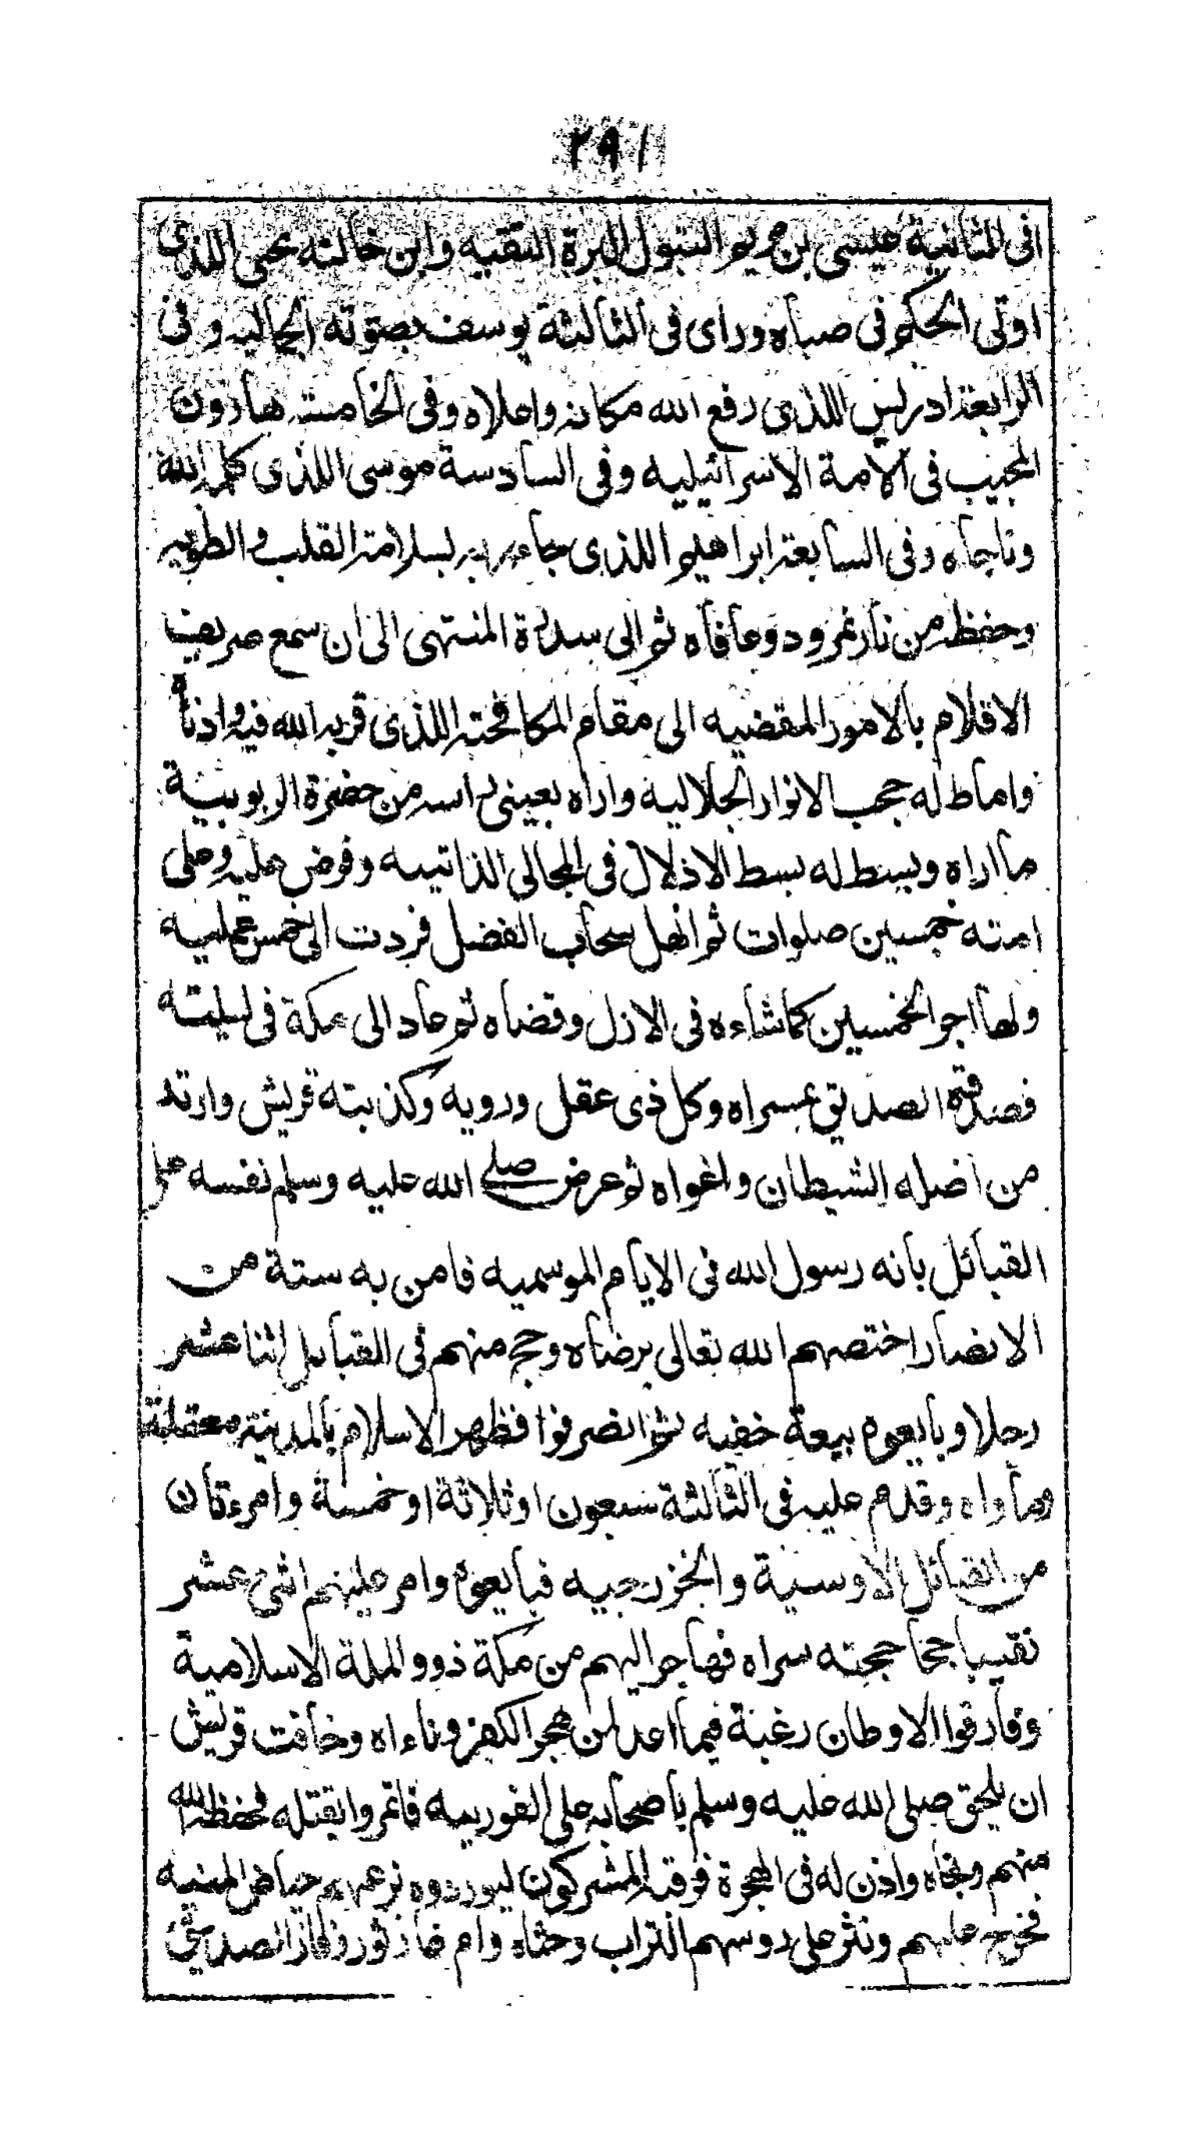 ٢٩١
افى الثانية عيسى بن مريم البتول البرة التقيه وابن خالته يحيى اللذى
اوتى الحكم فى صباه وراى فى الثالثة يوسف بصوته الجماليه وفى
الرابعة ادريس اللذى رفع الله مكانه واعلاه وفى الخامسته هارون
المجيب فى الامة الاسرائيليه وفى السادسة موسى اللذى كلمه الله
وناجاه وفى السابعته ابراهيم اللذى جاء ربه بسلامته القلب والطويه
وحفظه من نار نمرود وعافاه ثم الى سدرة المنتهى الى ان سمع صريف
الاقلام بالامور المقضيه الى مقام المكافحته اللذى قربه الله فيه وادناه
واماط له حجب الانوار الجلاليه واراه بعينى راسه من حضرة الربوبية
ما اراه وبسط له بسط الاذلال فى المجالى الذاتيه وفوض عليه وعلى
امته خمسين صلوات ثم انهل سحاب الفضل فردت الى خمس عمليه
ولها اجر الخمسين كما شاءه فى الازل وقضاه ثم عاد الى مكة فى ليلته
فصدقته الصديق بمسراه وكل ذى عقل ورويه وكذبته قريش وارتد
من اضله الشيطان واغواه ثم عرض صلى الله عليه وسلم نفسه على
القبائل بانه رسول الله فى الايام الموسميه فامن به ستة من
الانصار اختصهم الله تعالى برضاه وحج منهم فى القبابل اثنا عشر
رجلا وبايعوه بيعة خفيه ثم انصرفوا فظهر الاسلام بالمدينته معقلة
وماواه وقدم عليه فى الثالثة سبعون اوثلاثة اوخمسة وامرءتان
من القبائل الاوسنية والخزرجيه فبايعوه وامر عليهم اثنى عشر
نقيبا جحا حجته سراه فهاجر اليهم من مكة ذوو الملة الاسلامية
وفارقوا الاوطان رغبة فيما اعد لمن هجر الكفر وناءاه وخافت قريش
ان يلحق صلى الله عليه وسلم باصحابه على الفوريه فاتمروا بقتله فحفظه الله
منهم ونجاه واذن له فى الهجرة فرقبه المشركون ليوردوه بزعمهم حياض المنيه
فخرج عليهم ونثر على روسهم التراب وحثاه وام غار ثور وفاز الصديق